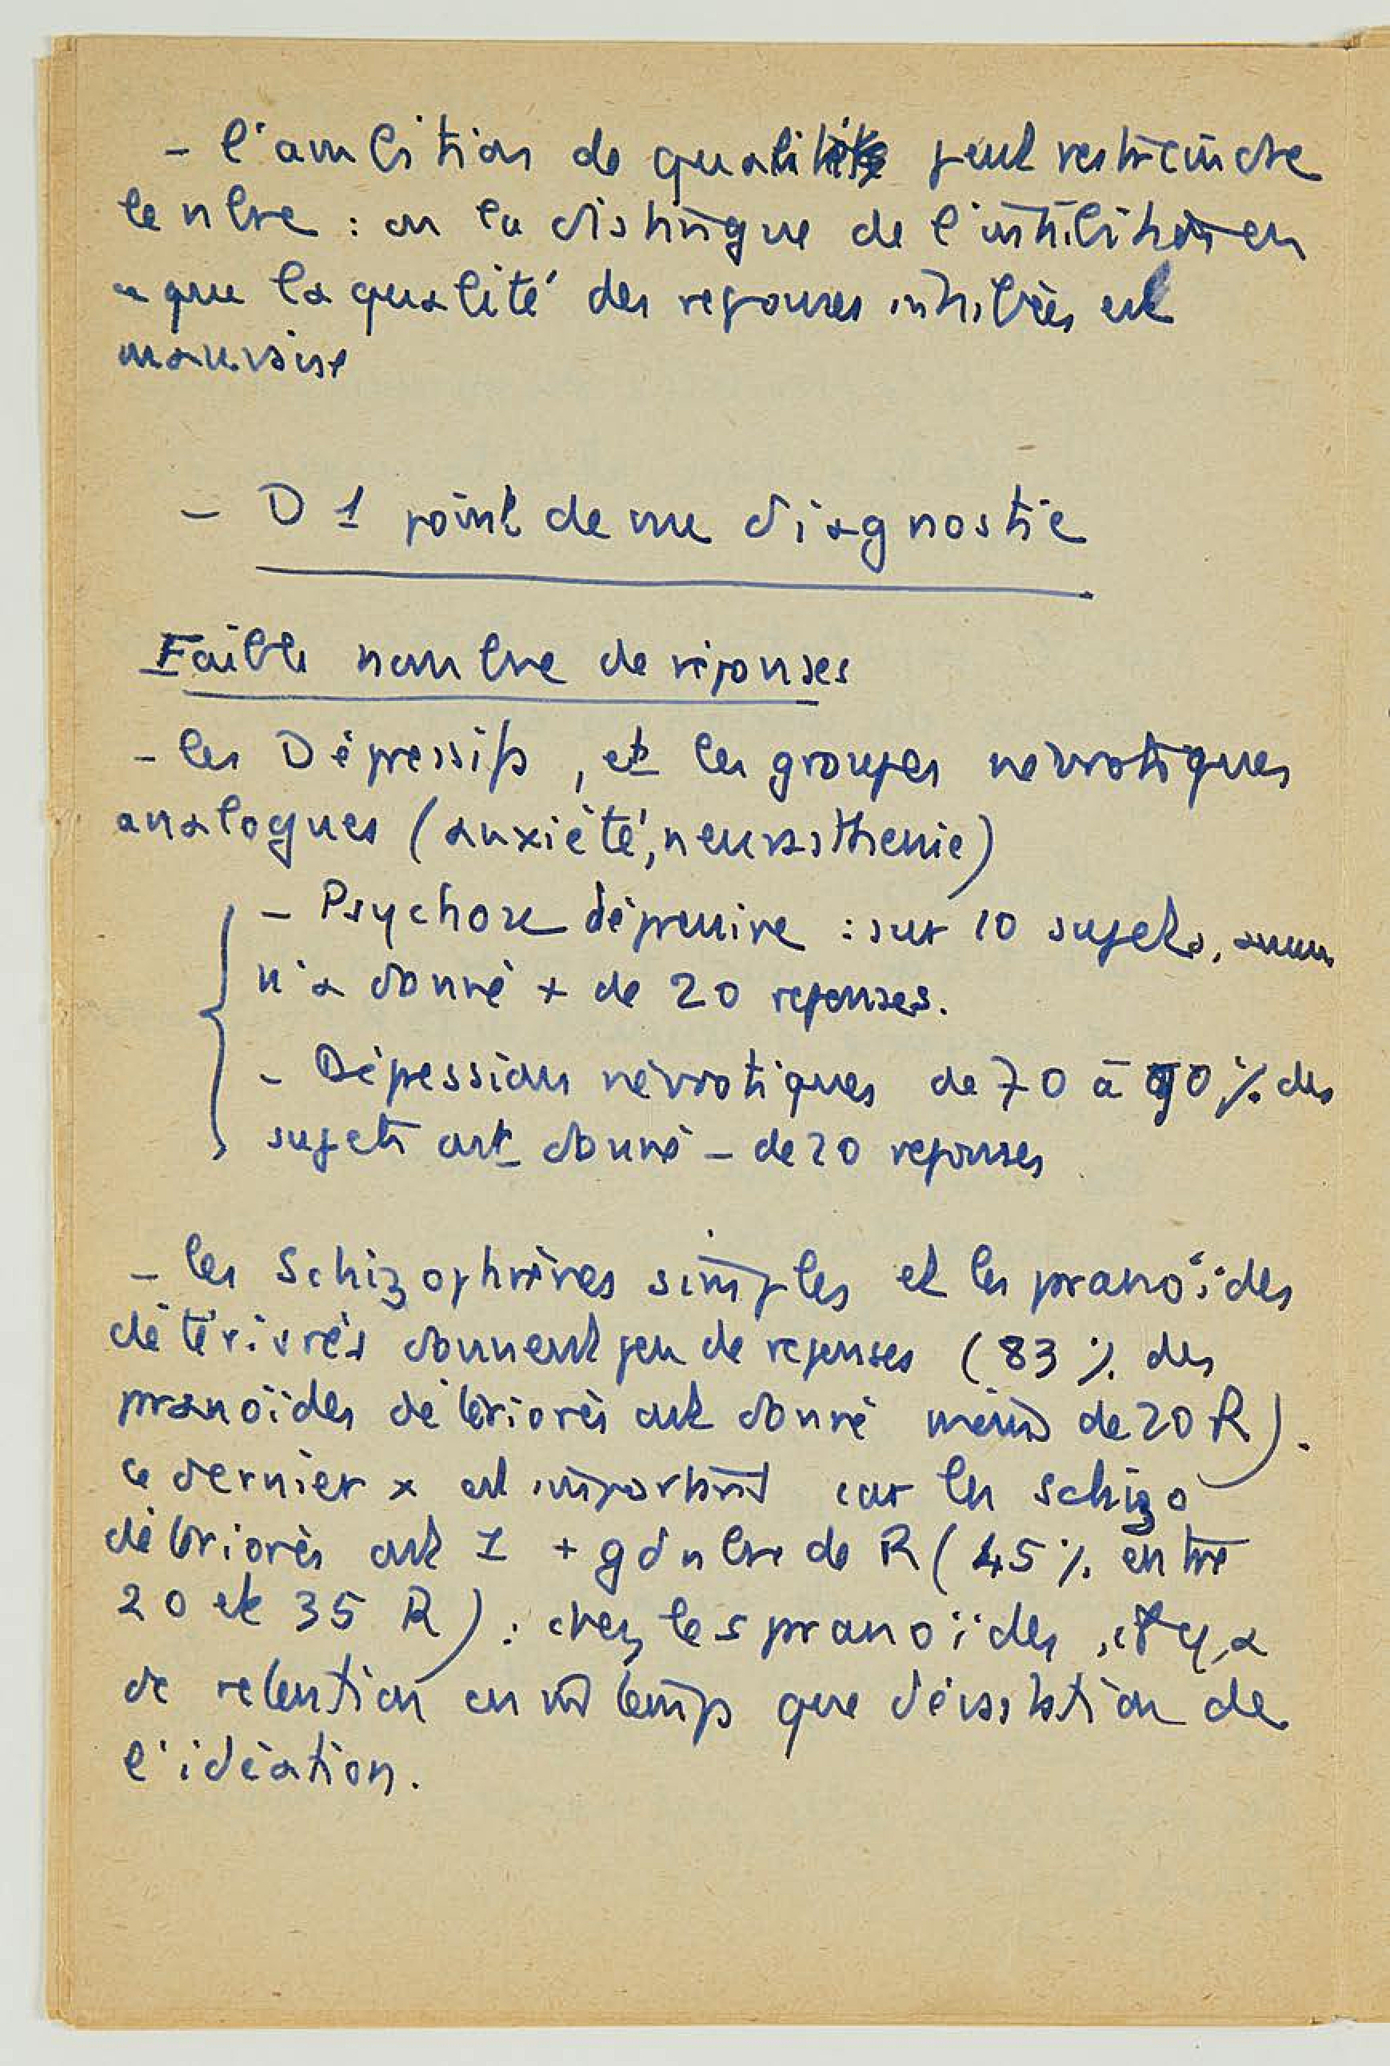 - l'ambition de qualité peut restreindre
le nbre : on la distingue de l'inhibition en
ce que la qualité des reponses inhibées est
mauvaise
- D 1 point de vue diagnostic
Faible nombre de réponses
- les Dépressifs, et les groupes névrotiques
analogues (anxiété, neurasthenie)
- Psychose dépressive : sur 10 sujets, aucun
n'a donné + de 20 reponses.
- Dépressions névrotiques de 70 à 90 % des
sujets ont donné - de 20 reponses
- les Schizophrènes simples et les pranoïdes
détériorés donnent peu de reponses (83 % des
pranoïdes déteriorés ont donné moins de 20 R).
ce dernier x est important car les schizo
déteriorés ont 1 + gd nbre de R (45 % entre
20 et 35 R) : chez les pranoïdes, il y a
de retention en m temps que dévastation de
l'idéation.